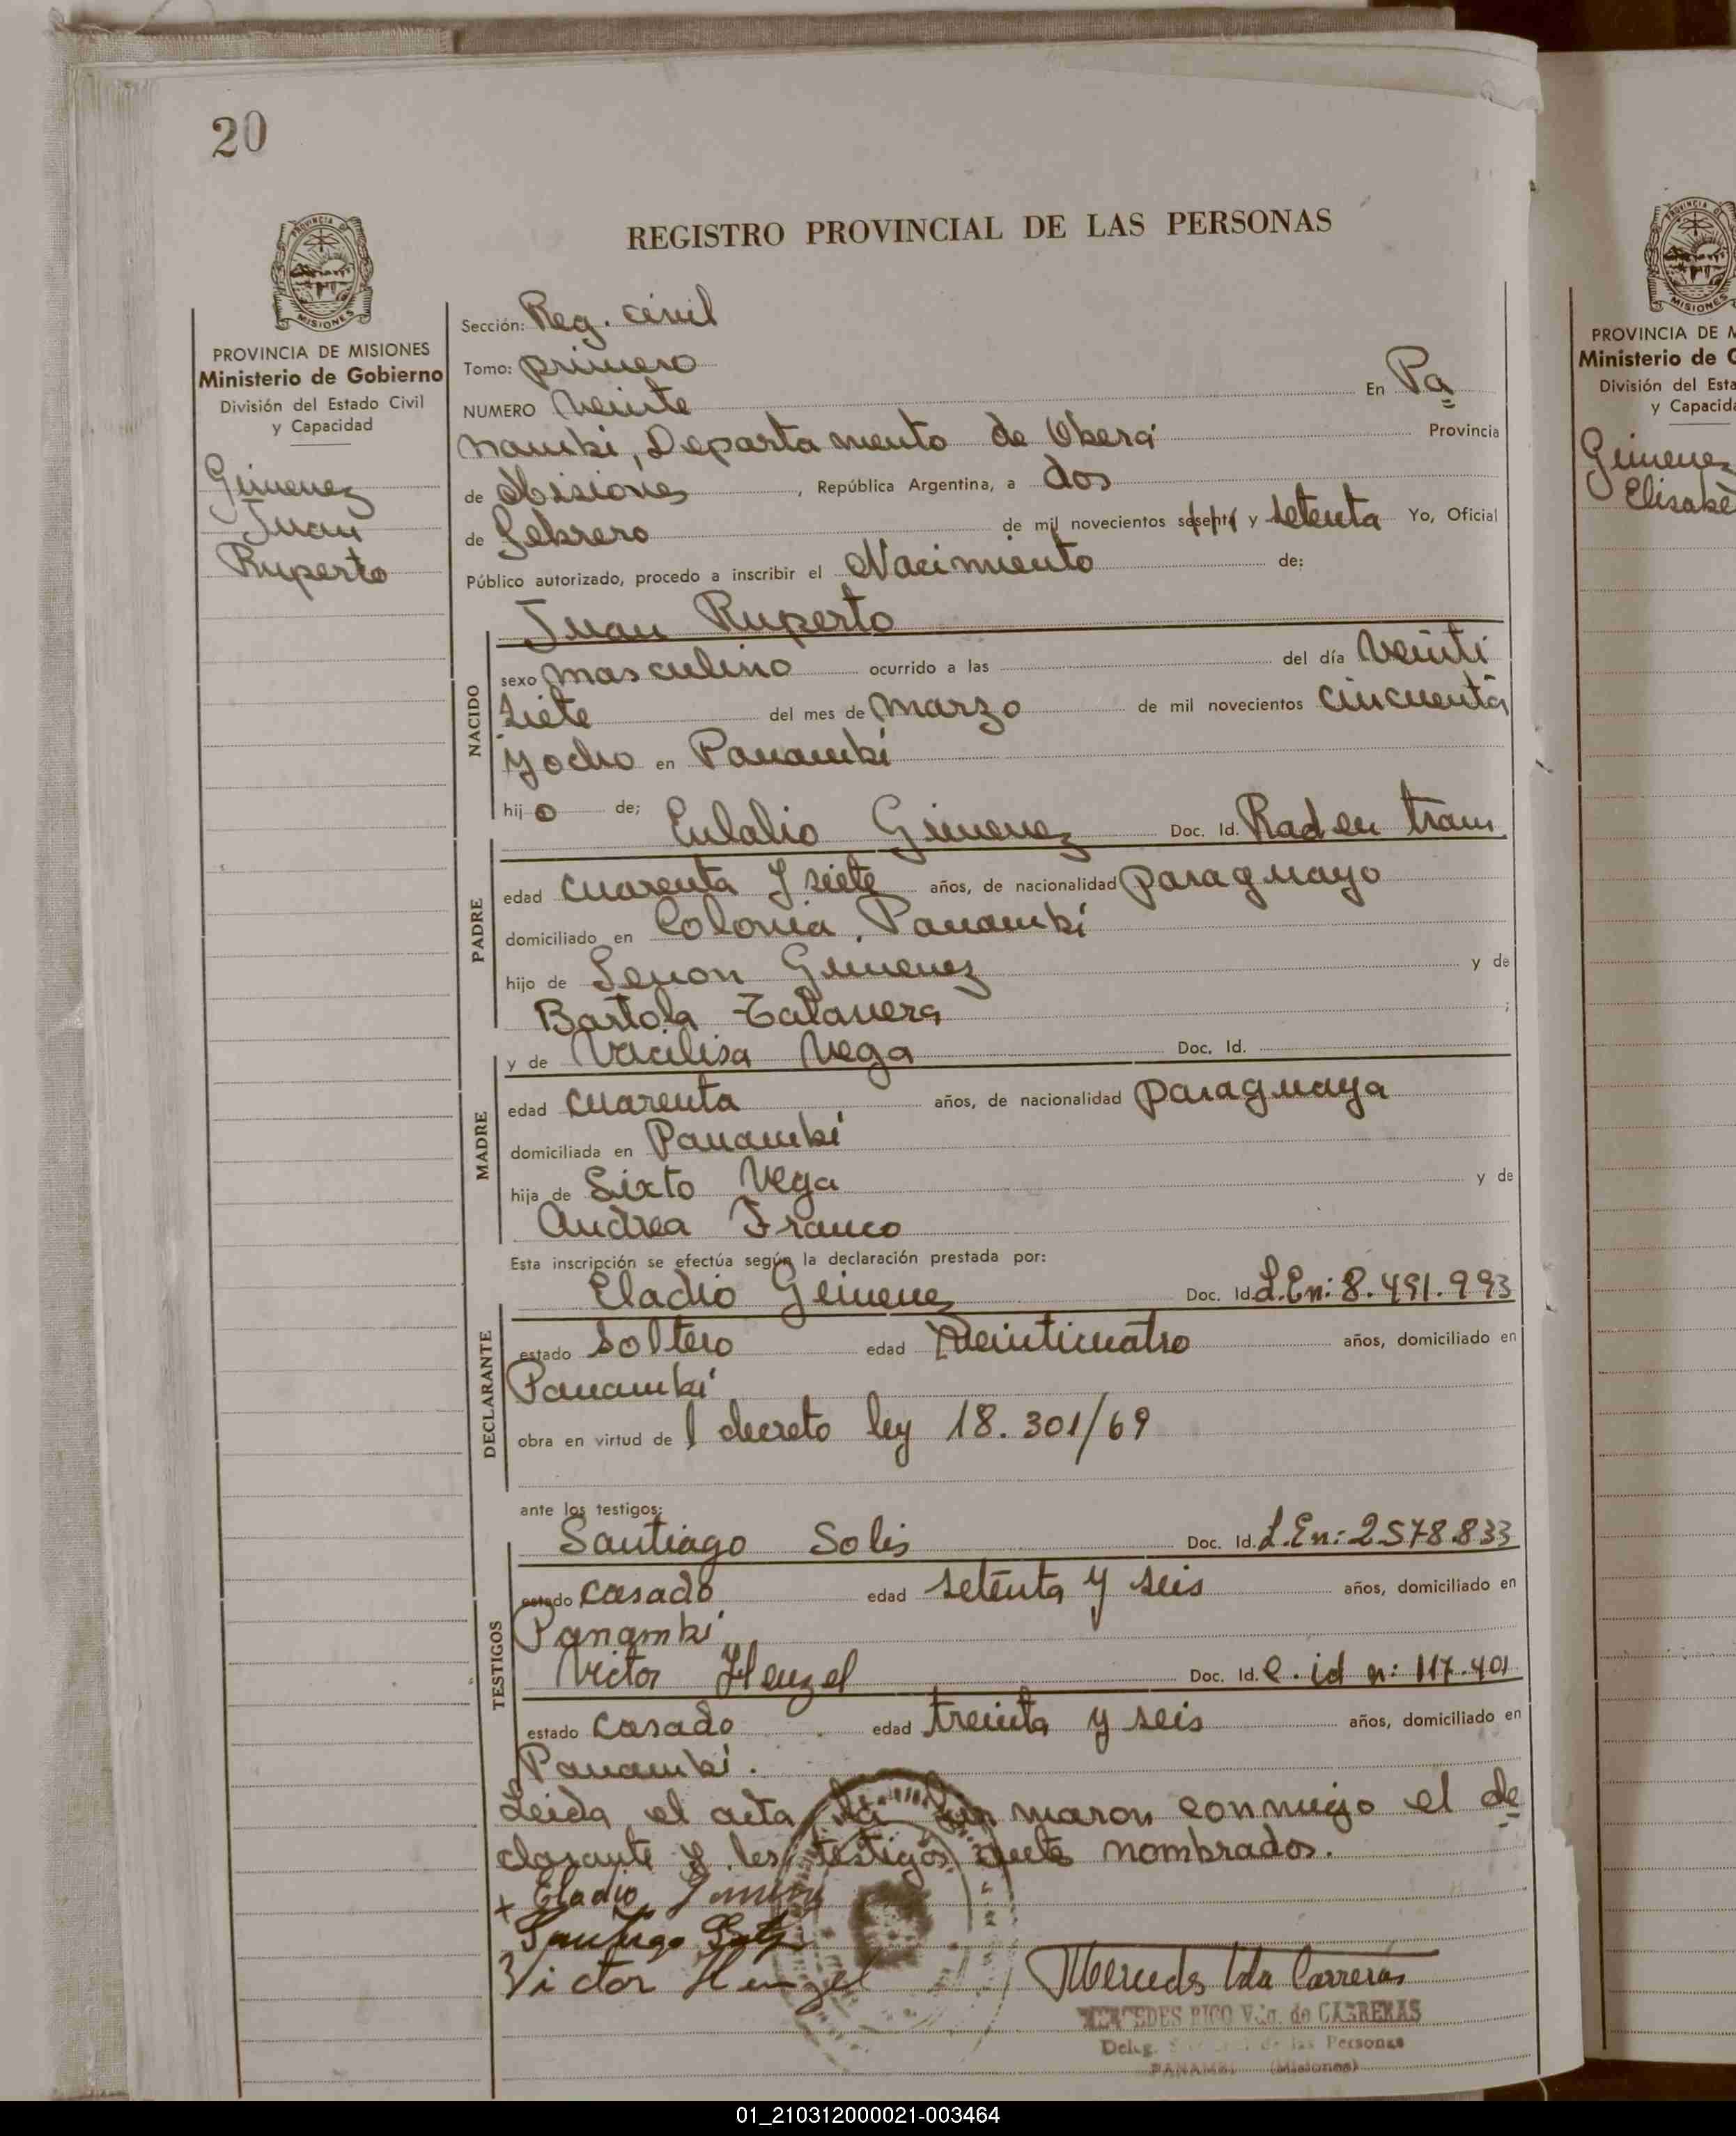 20
REGISTRO PROVINCIAL DE LAS PERSONAS
PROVINCIA DE MISIONES
Ministerio de Gobierno
División del Estado Civil
y Capacidad
Gimenez
Juan
Ruperto
Sección: Reg. civil
Tomo: primero
NUMERO Veinte En Pa
nambi, Departamento de Oberá Provincia
de Misiones, República Argentina, a dos
de febrero de mil novecientos sesenta y setenta Yo, Oficial
Público autorizado, procedo a inscribir el Nacimiento de:
Juan Ruperto
NACIDO
sexo masculino ocurrido a las del día veinti
siete del mes de marzo de mil novecientos cincuenta
y ocho en Panambi
hijo de; Eulalio Gimenez Doc. Id. Rad en tram
PADRE
edad cuarenta y siete años, de nacionalidad paraguayo
domiciliado en Colonia Panambi
hijo de Senon Gimenez y de
Bartola Talavera ;
MADRE
y de Vacilisa Vega Doc. Id.
edad cuarenta años, de nacionalidad paraguaya
domiciliada en Panambi
hija de Sixto Vega y de
Andrea Franco
Esta inscripción se efectúa según la declaración prestada por:
DECLARANTE
Eladio Gimenez Doc. Id. L.En: 8.491.993
estado soltero edad Veinticuatro años, domiciliado en
Panambi
obra en virtud de l decreto ley 18.301/69
ante los testigos:
TESTIGOS
Santiago Solis Doc. Id. L.En: 2.578.833
estado casado edad setenta y seis años, domiciliado en
Panambi
Victor Henzel Doc. Id. C. id n: 117.401
estado casado edad treinta y seis años, domiciliado en
Panambi.
Leida el acta la firmaron conmigo el de
clarante y los testigos antes nombrados.
+ Eladio Jimenez
Santiago Solis
Victor Henzel
Mercedes Vda Carreras
MERCEDES PICO Vda. de CARRERAS
Deleg. de las Personas
PANAMBI (Misiones)
PROVINCIA DE M
Ministerio de G
División del Esta
y Capacida
Gimenez
Elisabe
01_210312000021-003464